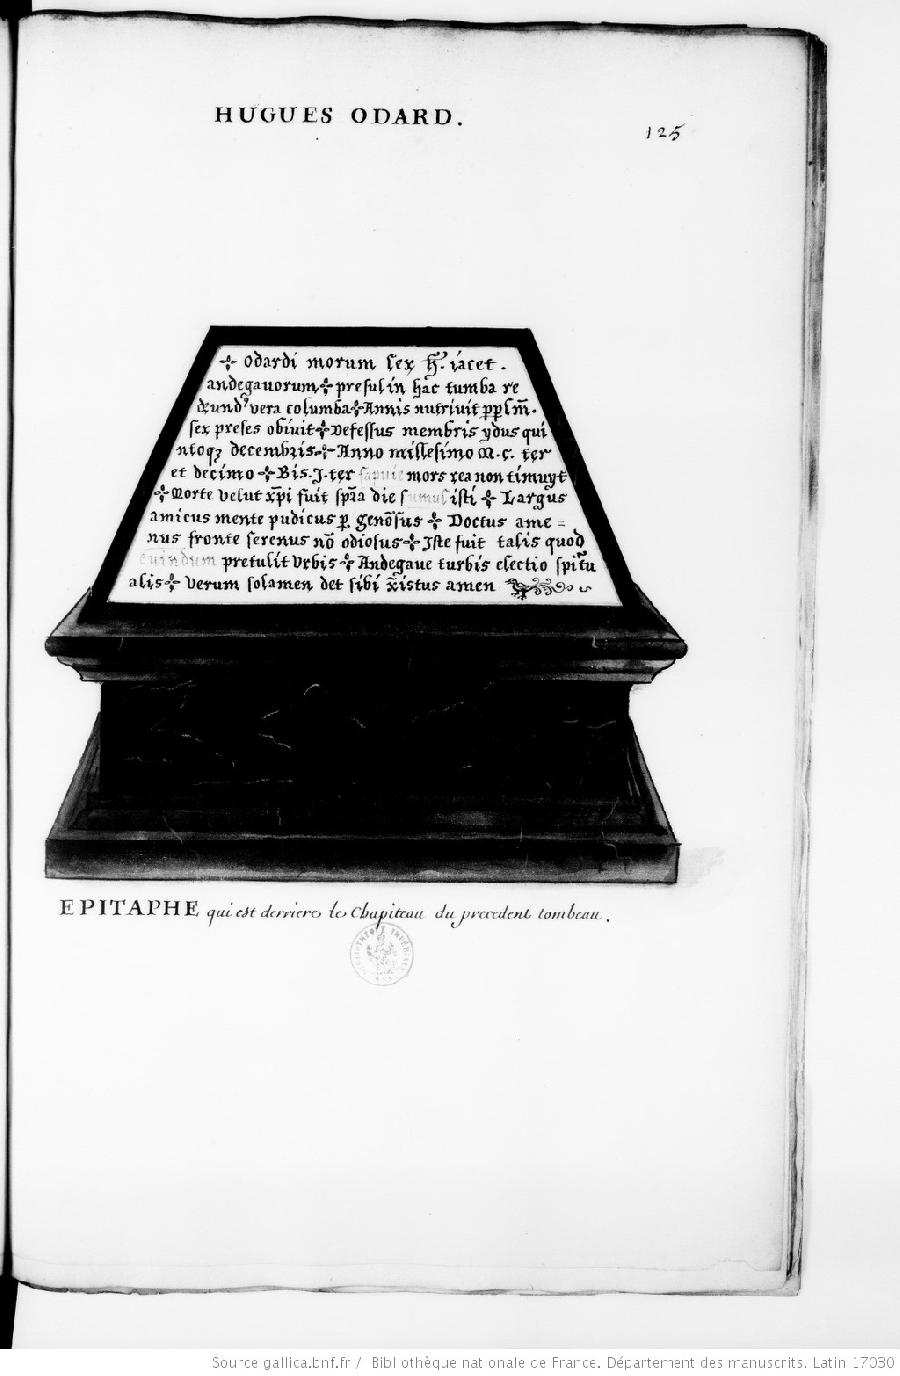 HUGUES ODARD.
125
✣ Odardi morum lex h̄. iacet.
andegauorum ✣ presul in hac tumba re
vera columba ✣ Annis nutriuit
sex preses obiuit ✣ Defessus membris ydus qui
ntoqꝫ decembris ✣ Anno millesimo M. c. ter
et decimo ✣ Bis. J. ter mors rea non timuyt
✣ Morte velut xp̄i fuit die isti ✣ Largus
amicus mente pudicus ✣ Doctus ame =
nus fronte serenus nō odiosus ✣ Iste fuit talis quod
pretulit vrbis ✣ Andegaue turbis electio spiru
alis ✣ verum solamen det sibi x̄istus amen
EPITAPHE qui est derriere le Chapiteau du precedent tombeau.
Source gallica.bnf.fr / Bibliothèque nationale de France. Département des manuscrits. Latin 17030